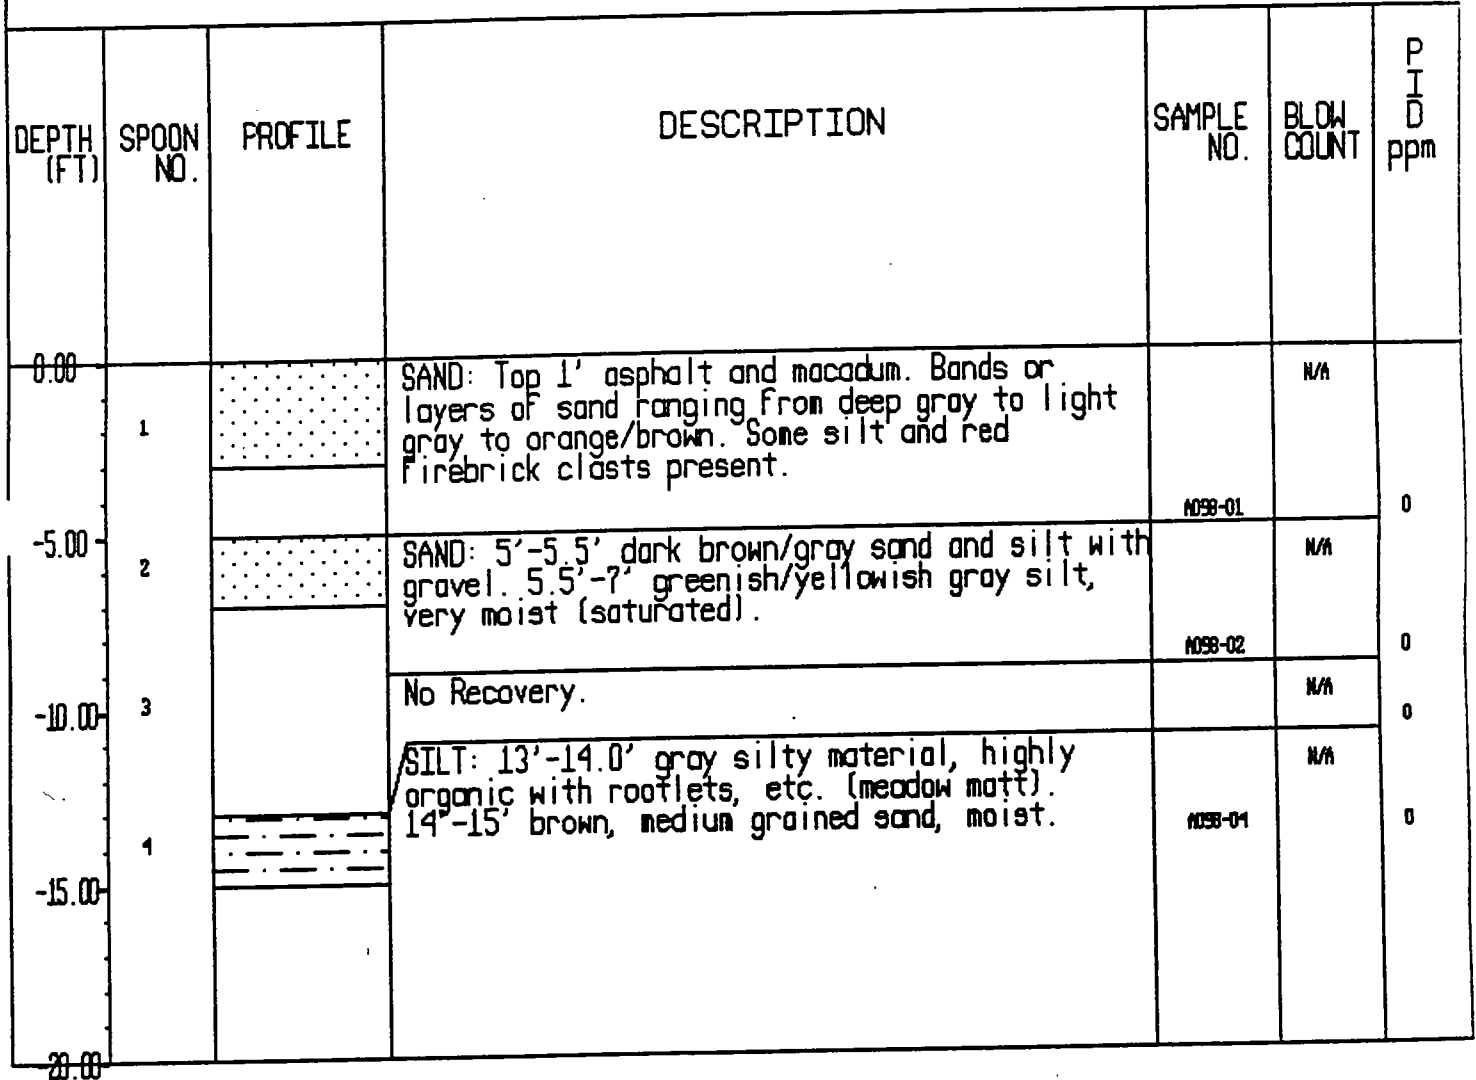 DEPTH (FT)
SPOON NO.
PROFILE
DESCRIPTION
SAMPLE NO.
BLOW COUNT
PID ppm
0.00
1
SAND: Top 1' asphalt and macadum. Bands or
layers of sand ranging from deep gray to light
gray to orange/brown. Some silt and red
firebrick clasts present.
A098-01
N/A
0
-5.00
2
SAND: 5'-5.5' dark brown/gray sand and silt with
gravel. 5.5'-7' greenish/yellowish gray silt,
very moist (saturated).
A098-02
N/A
0
-10.00
3
No Recovery.
N/A
0
SILT: 13'-14.0' gray silty material, highly
organic with rootlets, etc. (meadow matt).
14"-15' brown, medium grained sand, moist.
4
A098-04
N/A
0
-15.00
-20.00